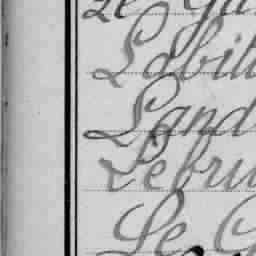 Le Ga
Labill
Land
Lebru
Le G